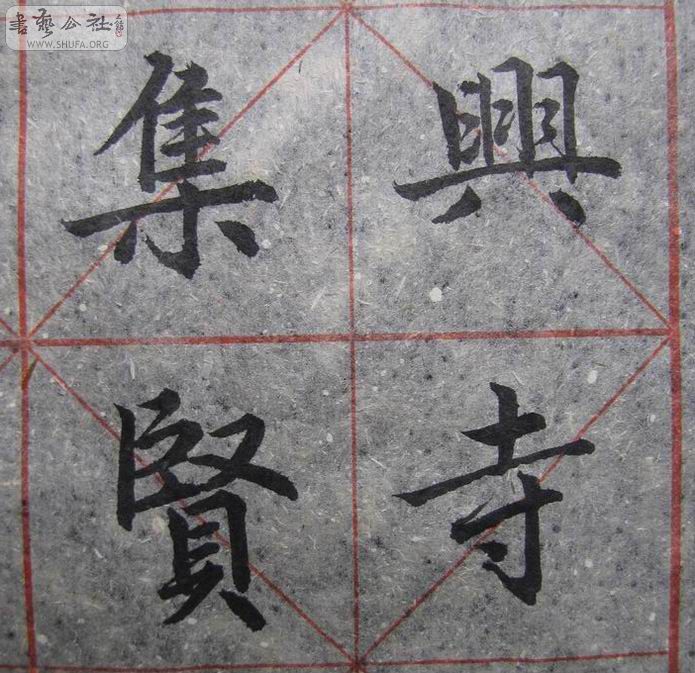 興寺
集賢
書藝公社
WWW.SHUFA.ORG